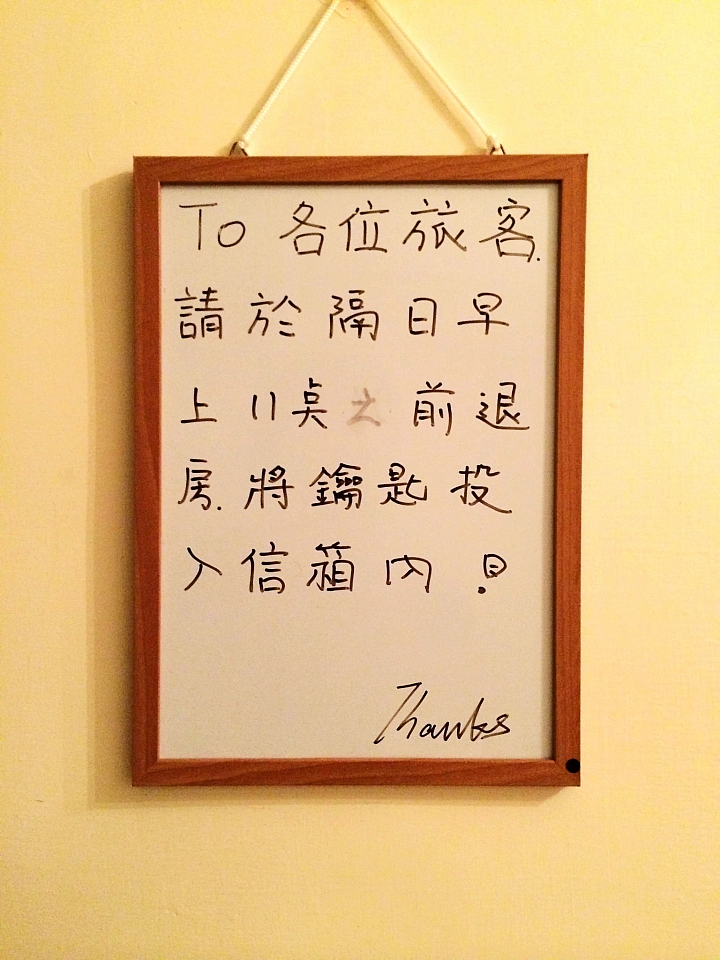 To 各位旅客.
請於隔日早
上11点之前退
房.將鑰匙投
入信箱內!
Thanks